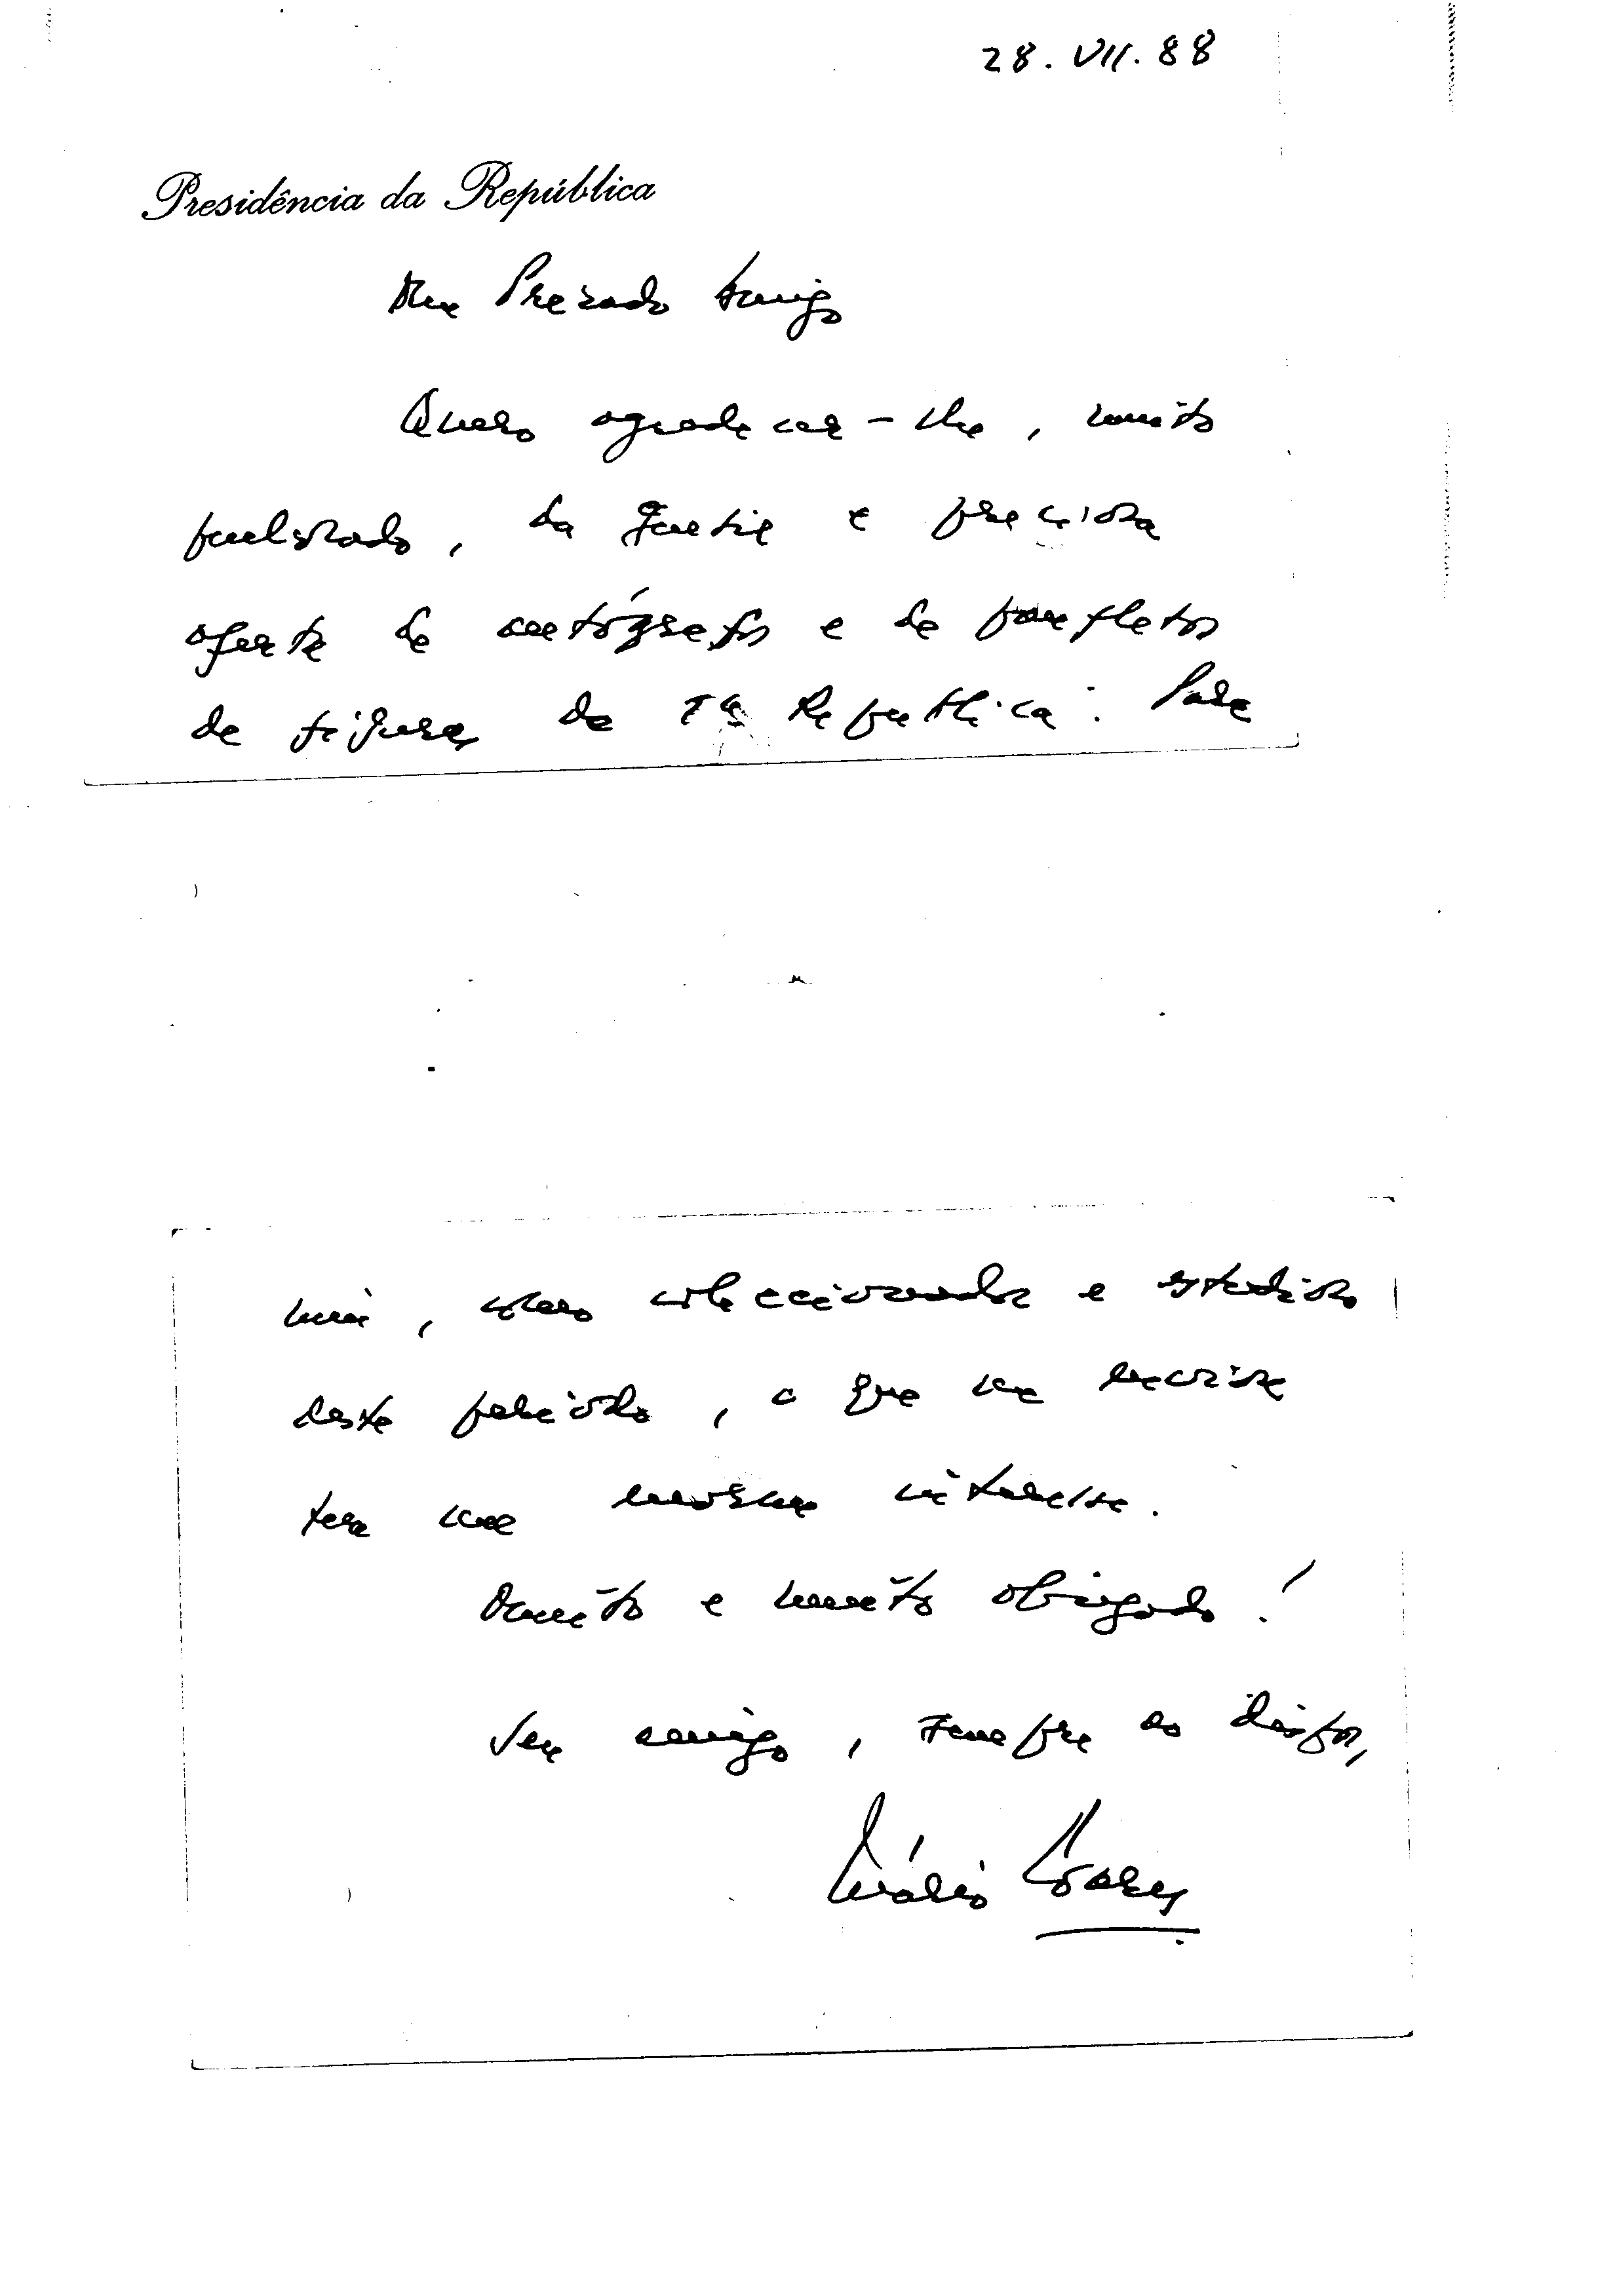 28.VII.88
Presidência da República
Meu Prezado Amigo
Quero agradecer-lhe, muito
penhorado, da gentil e preciosa
oferta de autógrafos e de panfletos
de figuras da 1ª República. Para
mim, como coleccionador e estudioso
deste período, o que me enviou
tem um enorme interesse.
Muito e muito obrigado!
Seu amigo, sempre ao dispor,
Mário Soares